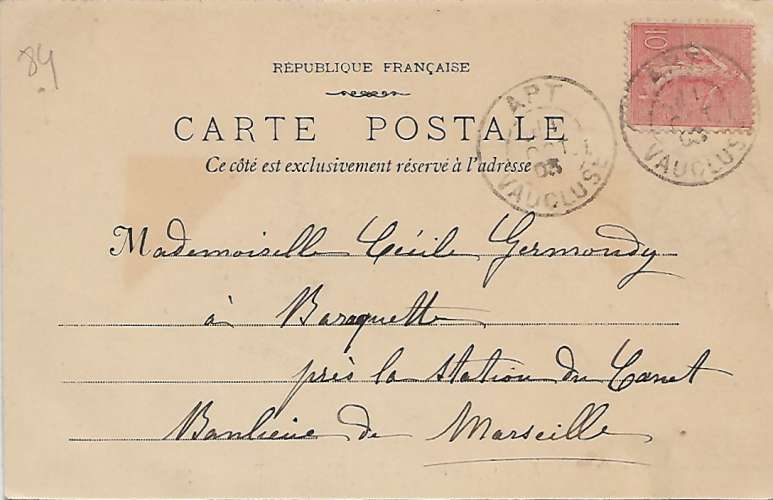 84
RÉPUBLIQUE FRANÇAISE
CARTE POSTALE
Ce côté est exclusivement réservé à l'adresse
APT
OCT.
03
VAUCLUSE
10
APT
03
VAUCLUSE
Mademoiselle Cécile Germondy
à Baraquette
près la Station du Canet
Banlieue de Marseille